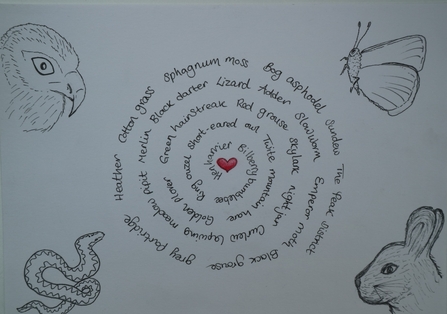 Heather Cotton grass Sphagnum moss Bog asphodel Sundew The Peak District
Black grouse grey Partridge
meadow Pipit Merlin Black darter Lizard Adder Slowworm Emperor moth
Curlew Lapwing Golden plover
Green hairstreak Red grouse Skylark nightjar
mountain hare Ring ouzel short-eared owl Twite
Bilberry bumblebee Hen harrier